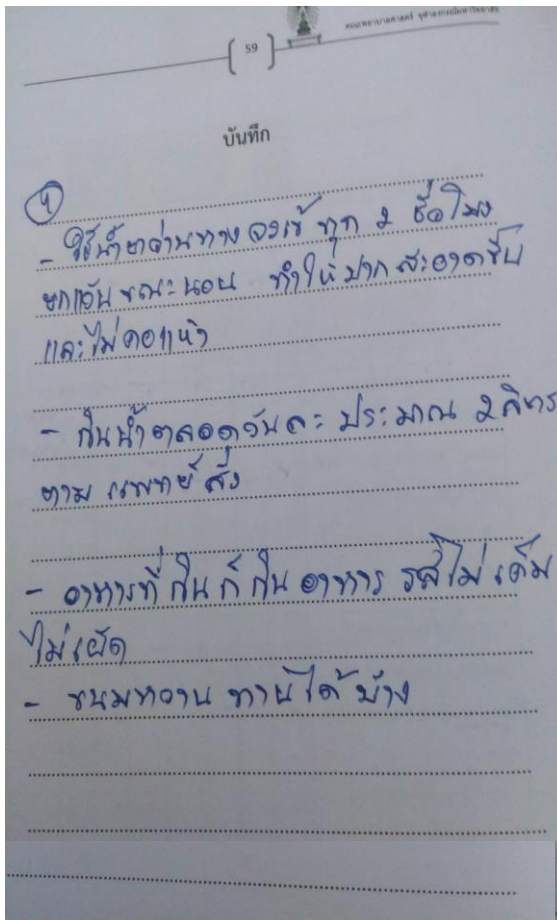 คณะพยาบาลศาสตร์ จุฬาลงกรณ์มหาวิทยาลัย
59
บันทึก
- ใช้น้ำยา ทุก 2 ชั่วโมง
ยกเว้นขณะนอน ทำให้ปากสะอาดขึ้น
และไม่คอแห้ง
- กินน้ำตลอดวันละ ประมาณ 2 ลิตร
ตามแพทย์สั่ง
- อาหารที่กินก็กินอาหาร รสไม่เค็ม
ไม่เผ็ด
- ขนมหวาน ทานได้บ้าง